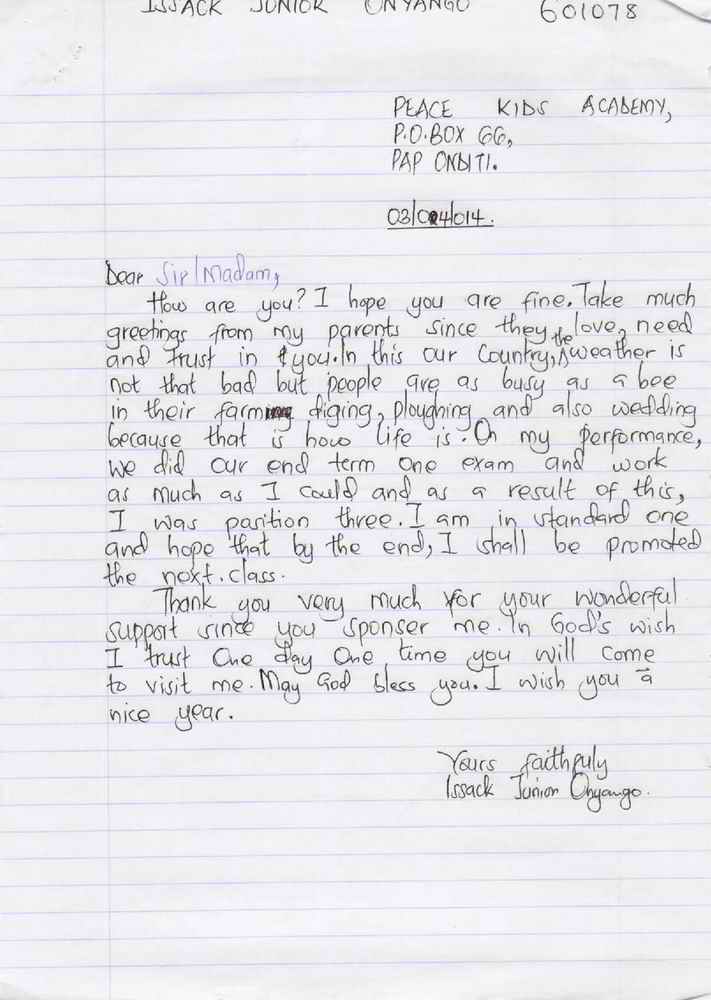 ISSACK JUNIOR ONYANGO 601078
PEACE KIDS ACADEMY,
P.O.BOX 66,
PAP ONDITI.
03/04/014.
Dear Sir/Madam,
How are you? I hope you are fine. Take much
greetings from my parents since they love, need
and trust in you. In this our Country, the weather is
not that bad but people are as busy as a bee
in their farming diging, ploughing and also wedding
because that is how life is. On my performance,
we did our end term one exam and work
as much as I could and as a result of this,
I was position three. I am in standard one
and hope that by the end, I shall be promoted
the next. class.
Thank you very much for your wonderful
support since you sponser me. In God's wish
I trust One day One time you will come
to visit me. May God bless you. I wish you a
nice year.
Yours faithfuly
Issack Junior Onyango.